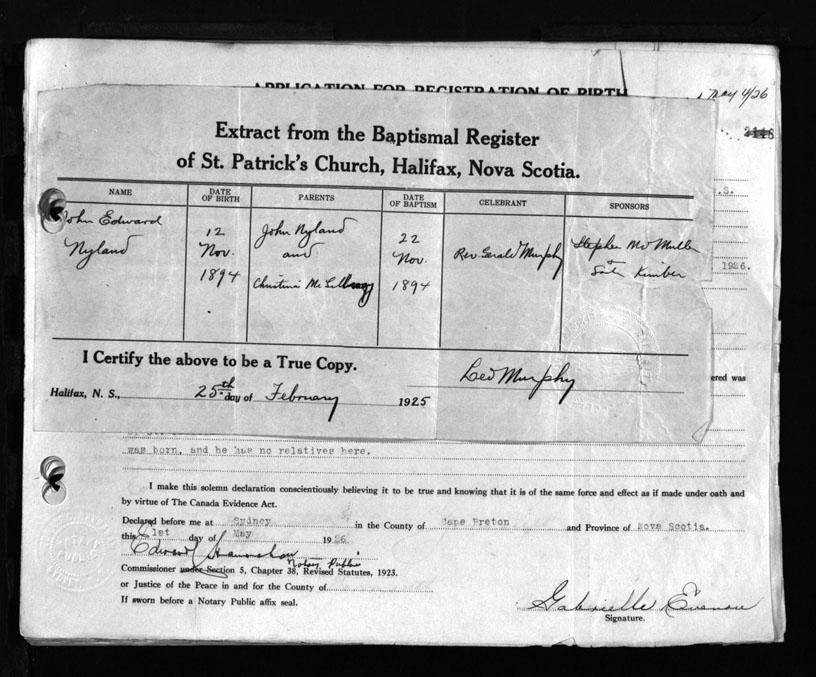 APPLICATION FOR REGISTRATION OF BIRTH
May 4/26
Extract from the Baptismal Register
of St. Patrick's Church, Halifax, Nova Scotia.
NAME DATE OF BIRTH PARENTS DATE OF BAPTISM CELEBRANT SPONSORS
John Edward Nyland
12 Nov. 1894
John Nyland and Christine
22 Nov. 1894
Rev. Gerald Murphy
Stephen + Kimber
1926.
I Certify the above to be a True Copy.
Leo Murphy
Halifax, N. S., 25th day of February 1925
ered was
was born, and he has no relatives here.
I make this solemn declaration conscientiously believing it to be true and knowing that it is of the same force and effect as if made under oath and
by virtue of The Canada Evidence Act.
Declared before me at Sydney in the County of Cape Breton and Province of Nova Scotia.
this 1st day of May 1926
Edward
Notary Public
Commissioner under Section 5, Chapter 38, Revised Statutes, 1923.
or Justice of the Peace in and for the County of
If sworn before a Notary Public affix seal.
Gabrielle
Signature.